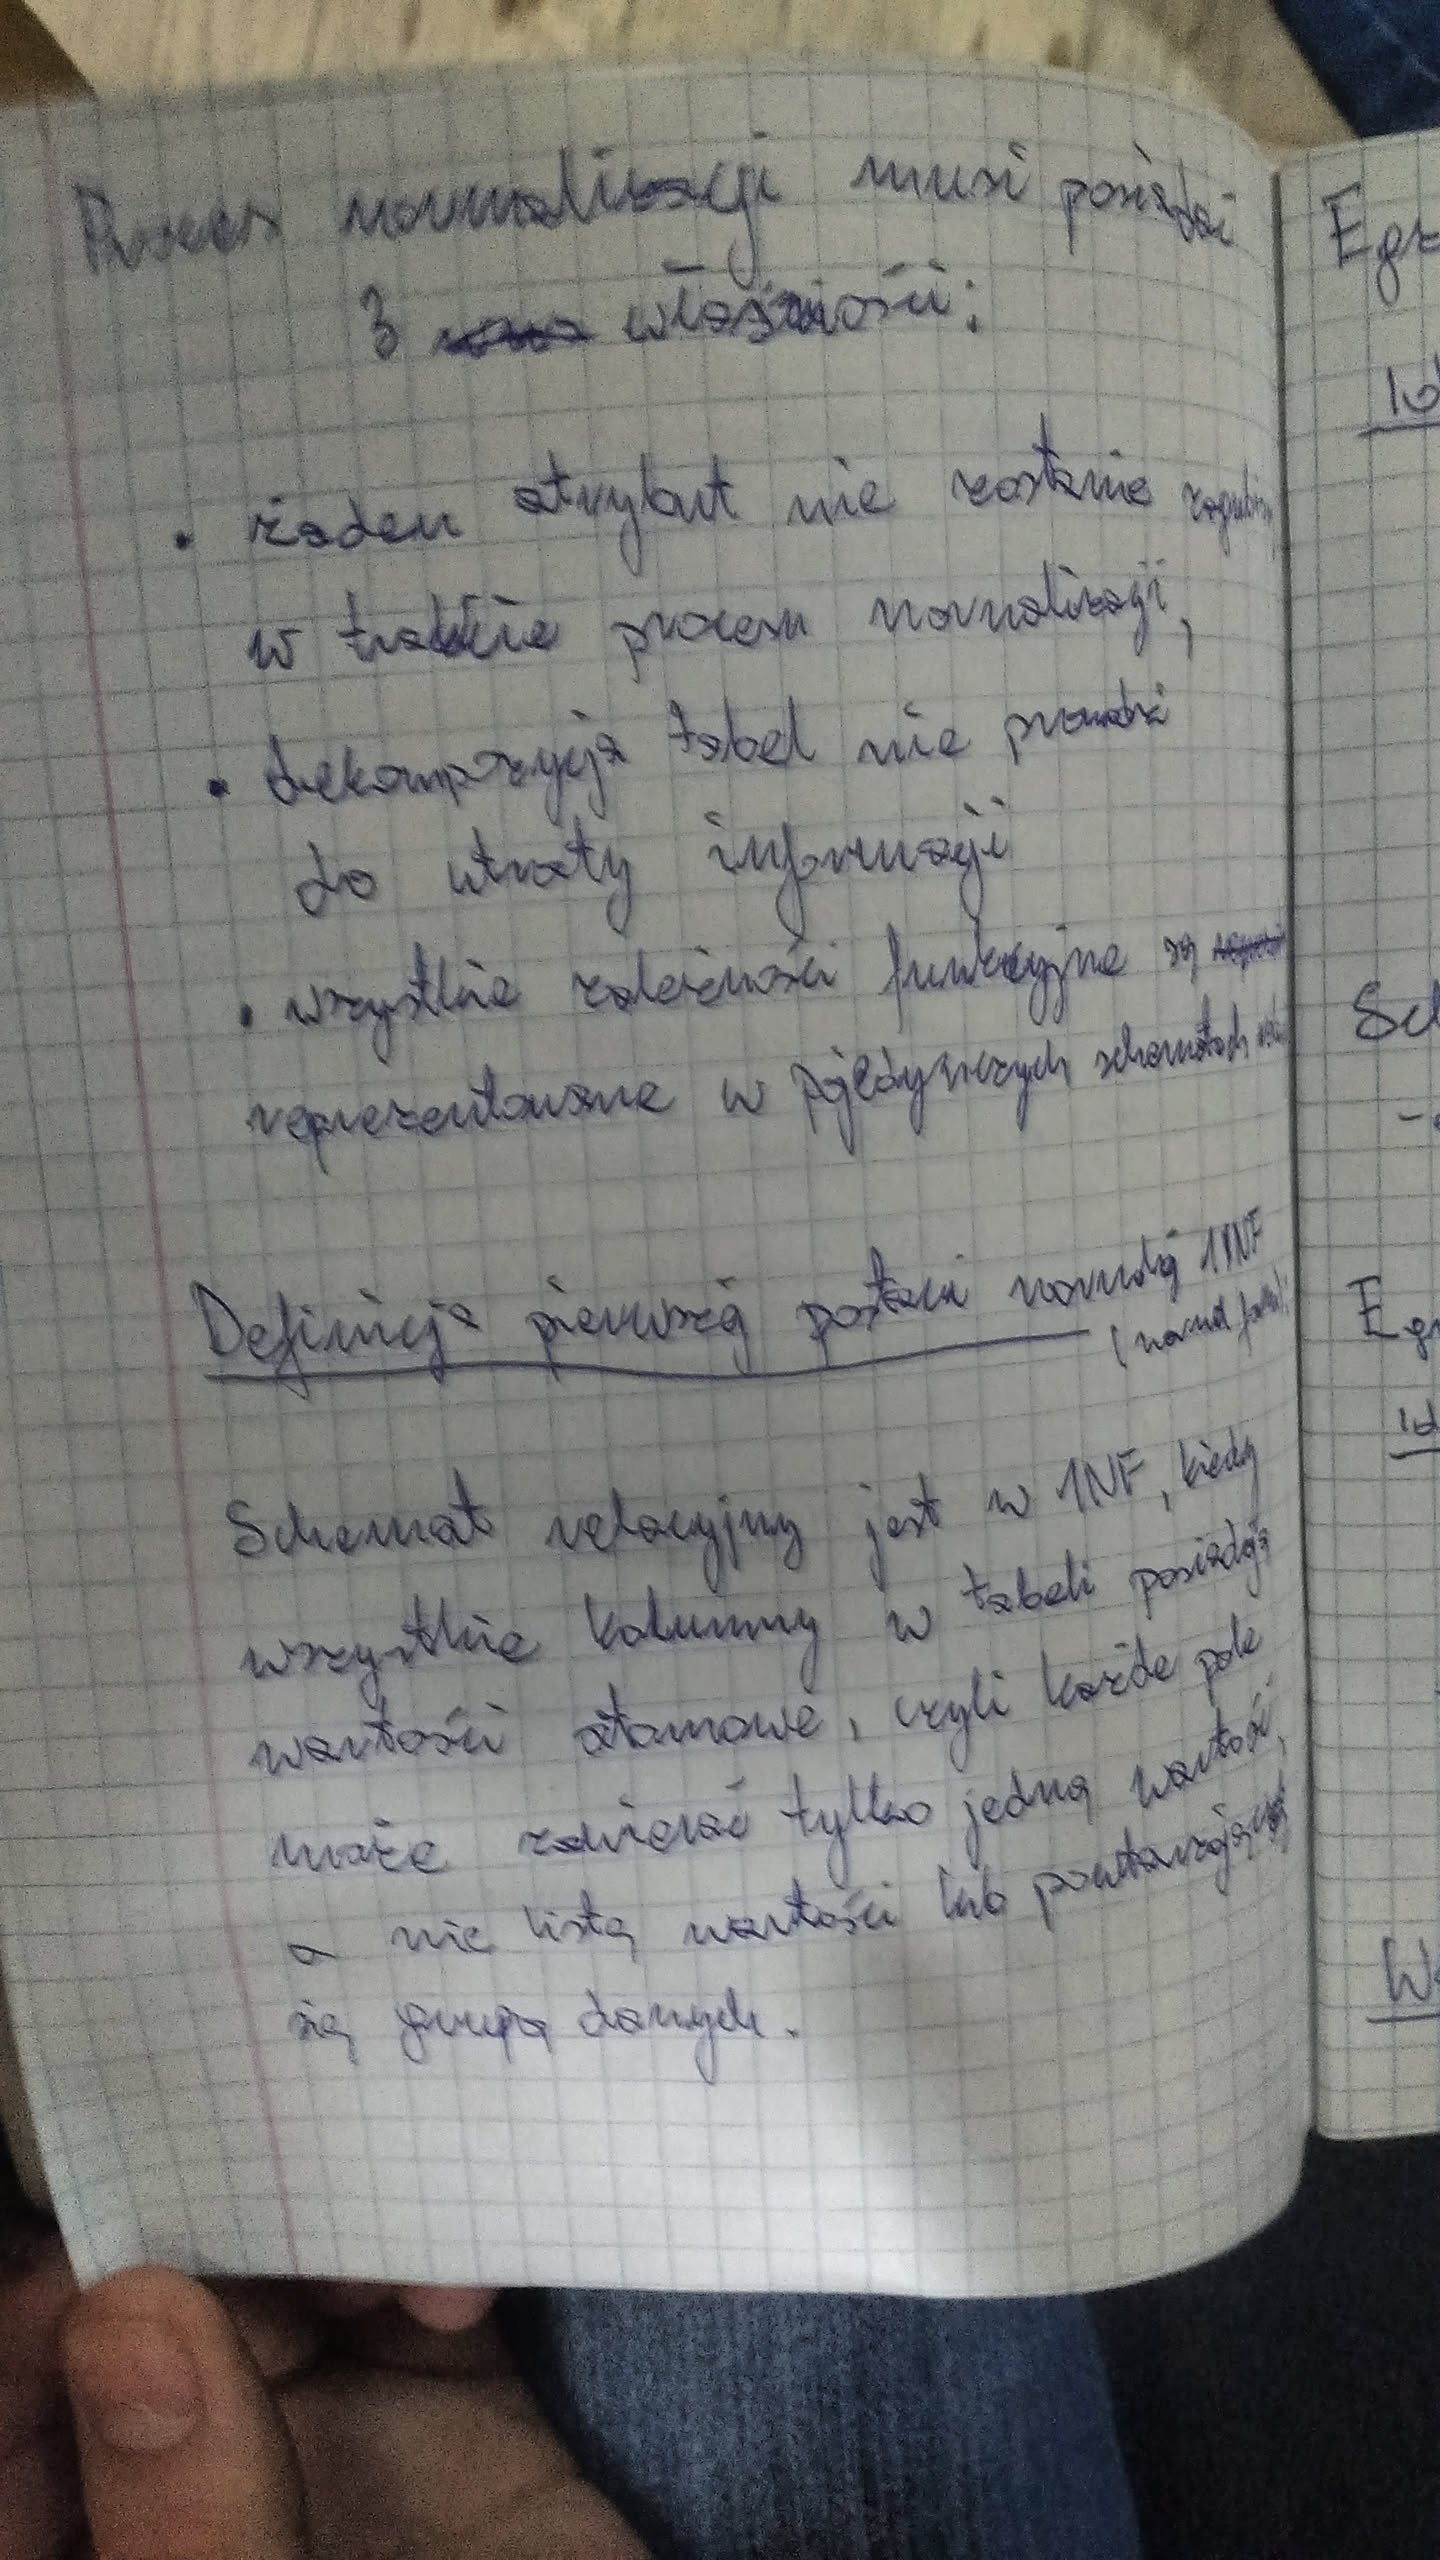 Proces normalizacji musi posiadać
3 własności:
• żaden atrybut nie zostanie
w trakcie procesu normalizacji,
• dekompozycja tabel nie prowadzi
do utraty informacji
• wszystkie zależności funkcyjne są
reprezentowane w pojedynczych schematach
Definicja pierwszej postaci normalnej 1NF
(normal
Schemat relacyjny jest w 1NF, kiedy
wszystkie kolumny w tabeli posiadają
wartości atomowe, czyli każde pole
może zawierać tylko jedną wartość,
a nie listę wartości lub powtarzającą
się grupą danych.
Id
Id